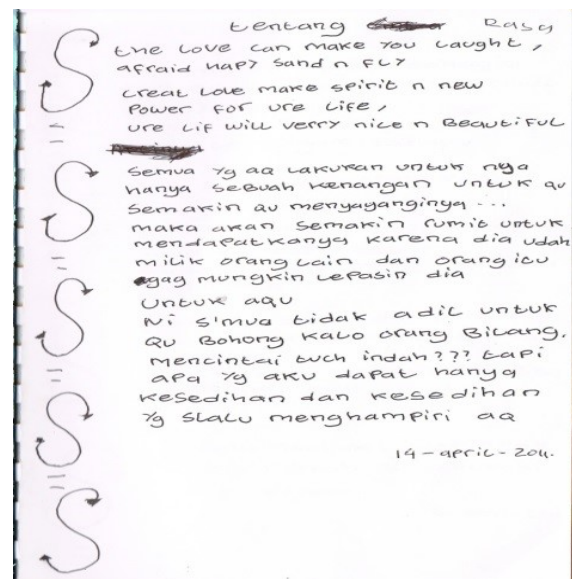 tentang Rasa
the Love can make you Laught,
afraid hapy sand n FLy
creat Love make spirit n new
Power for ure Life,
ure Lif will verry nice n Beautiful
Semua yg aq Lakukan untuk nya
hanya sebuah kenangan untuk qu
Semakin qu menyayanginya ...
maka akan semakin rumit untuk
mendapatkanya karena dia udah
milik orang Lain dan orang itu
gag mungkin Lepasin dia
Untuk aqu
Ni s'mua tidak adil untuk
Qu Bohong kalo orang Bilang.
mencintai tuch indah??? tapi
apa yg aku dapat hanya
kesedihan dan kesedihan
yg sLalu menghampiri aq
14-april-2011.